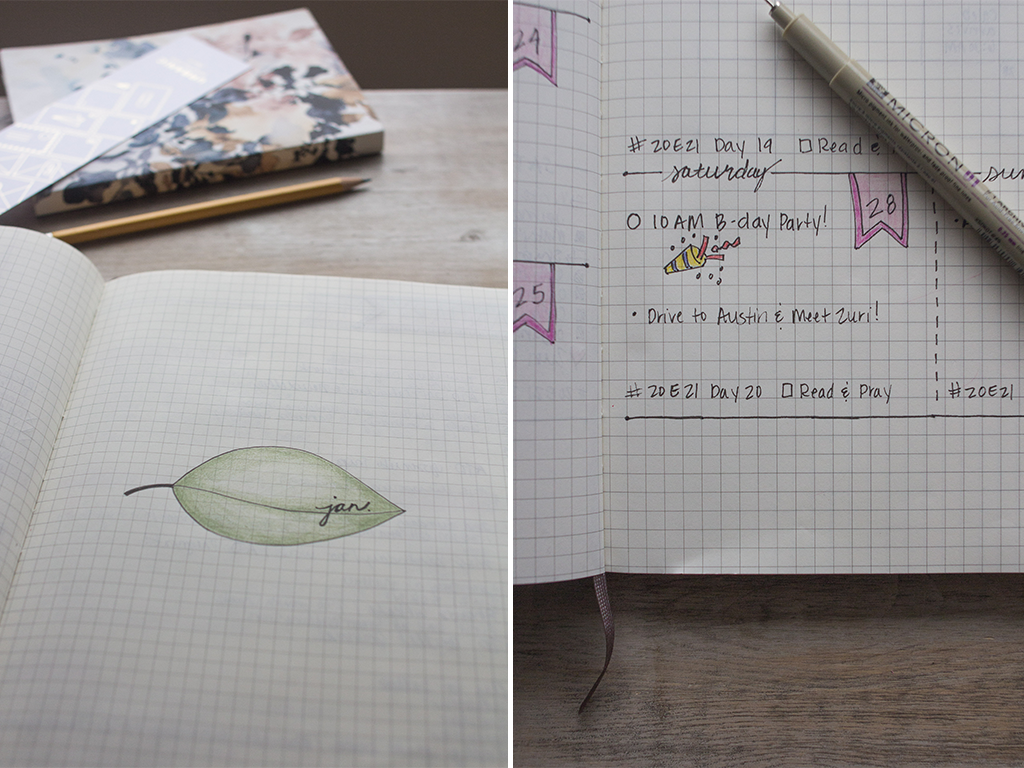 jan.
24
25
#20E21 Day 19 □ Read &
saturday
28
O 10 AM B-day Party!
• Drive to Austin & Meet Zuri!
#20E21 Day 20 □ Read & Pray
sun
#20E21
MICRON